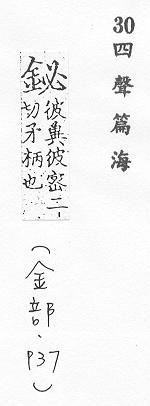 30四聲篇海
鉍彼冀彼密二
切矛柄也
(金部.937)